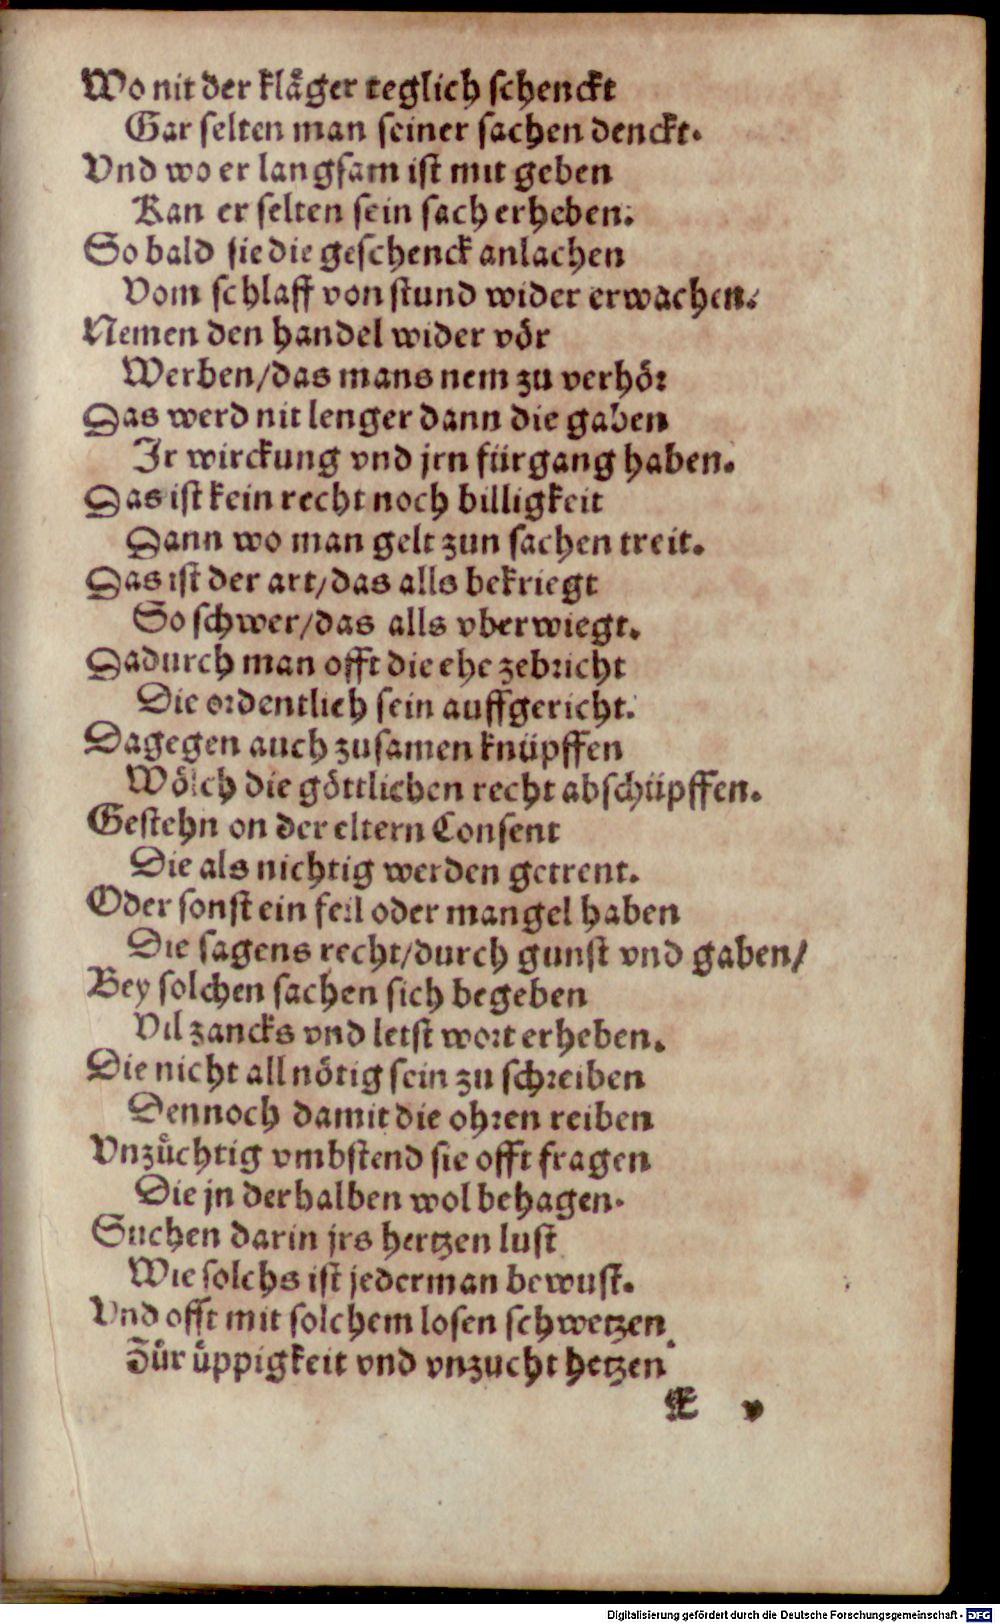 Wo nit der klaͤger teglich schenckt
Gar selten man seiner sachen denckt.
Vnd wo er langsam ist mit geben
Kan er selten sein sach erheben.
So bald sie die geschenck anlachen
Vom schlaff von stund wider erwachen.
Nemen den handel wider vör
Werben/das mans nem zu verhör
Das werd nit lenger dann die gaben
Ir wirckung vnd jrn fürgang haben.
Das ist kein recht noch billigkeit
Dann wo man gelt zun sachen treit.
Das ist der art/das alls bekriegt
So schwer/das alls vberwiegt.
Dadurch man offt die ehe zebricht
Die ordentlich sein auffgericht.
Dagegen auch zusamen knüpffen
Wölch die göttlichen recht abschüpffen.
Gestehn on der eltern Consent
Die als nichtig werden getrent.
Oder sonst ein feil oder mangel haben
Die sagens recht/durch gunst vnd gaben/
Bey solchen sachen sich begeben
Vil zancks vnd letst wort erheben.
Die nicht all nötig sein zu schreiben
Dennoch damit die ohren reiben
Vnzuͤchtig vmbstend sie offt fragen
Die jn derhalben wol behagen.
Suchen darin jrs hertzen lust
Wie solchs ist jederman bewust.
Vnd offt mit solchem losen schwetzen
Zuͤr uͤppigkeit vnd vnzucht hetzen
E v
Digitalisierung gefördert durch die Deutsche Forschungsgemeinschaft - DFG